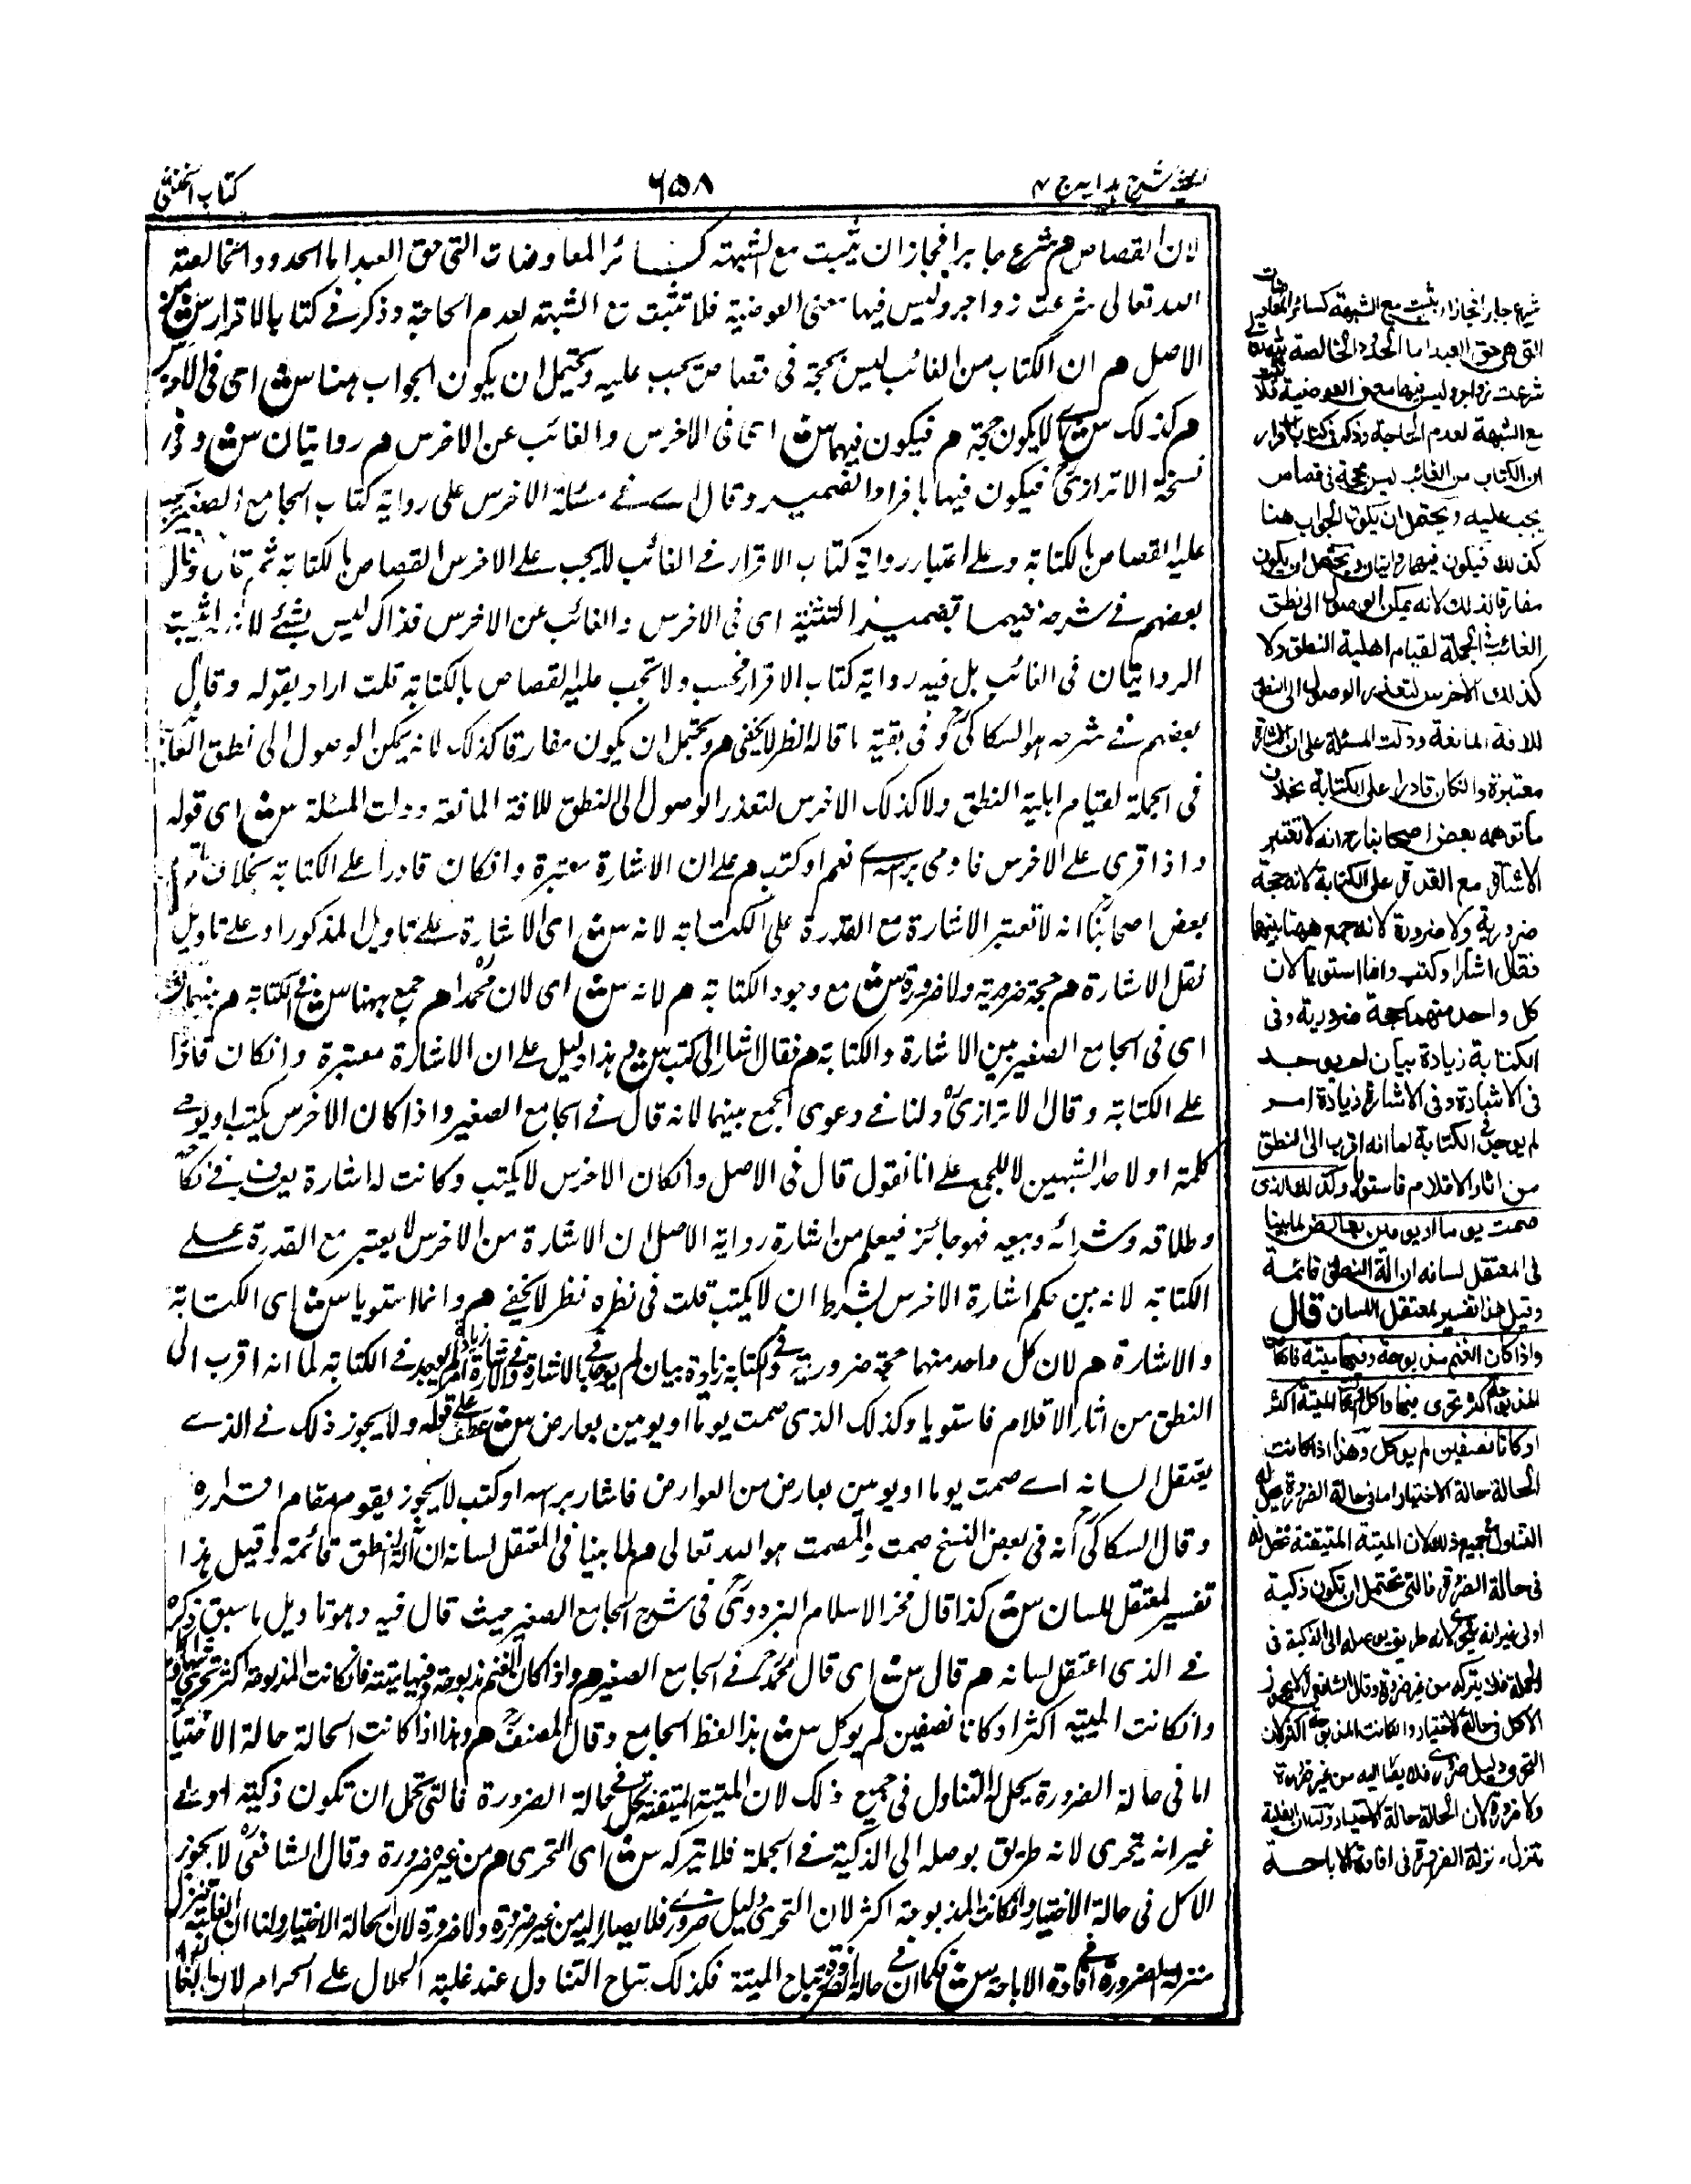 عينى شرح هدايه ج ٤
٦٥٨
كتاب الخنثى
لان القصاص هم شرع جابرا فجازان يثبت مع الشبهة كسائر المعاوضات التى حق العبد اما الحدود الخالصة
الله تعالى شرعت زواجر وليس فيها معنى العوضية فلا تثبت مع الشبهة لعدم الحاجة وذكر فى كتاب الاقرار ش من
الاصل هم ان الكتاب من الغائب ليس بحجة فى قصاص يجب عليه ويحتمل ان يكون الجواب هنا ش اى فى الاخرس
هم كذلك ش اى لا يكون حجة هم فيكون فيهما ش اى فى الاخرس والغائب عن الاخرس هم روايتان ش وفى
نسخة الاترازى فيكون فيها بافراد الضمير وقال اى فى مسئلة الاخرس على رواية كتاب الجامع الصغير يجب
عليه القصاص بالكتابة وعلى اعتبار رواية كتاب الاقرار فى الغائب لا يجب على الاخرس القصاص بالكتابة ثم قال وقال
بعضهم فى شرحه فيهما بضمير التثنية اى فى الاخرس والغائب عن الاخرس فذاك ليس بشئ لانه لم يثبت
الروايتان فى الغائب بل فيه رواية كتاب الاقرار فحسب ولا تجب عليه القصاص بالكتابة قلت اراد بقوله وقال
بعضهم فى شرحه هو السكاكى وفى بقية ما قاله نظر لا يخفى هم ويحتمل ان يكون مفارقا كذلك لانه يمكن الوصول الى نطق الغائب
فى الجملة لقيام اهلية النطق ولا كذلك الاخرس لتعذر الوصول الى النطق للافة المانعة ودلت المسئلة ش اى قوله
واذا قرى على الاخرس فاومى براسه اى نعم او كتب هم على ان الاشارة معتبرة وان كان قادرا على الكتابة بخلاف ما توهمه
بعض اصحابنا انه لا تعتبر الاشارة مع القدرة على الكتابة لانه ش اى الاشارة على تاويل المذكور او على تاويل
نقل الاشارة هم حجة ضرورية ولا ضرورة ش مع وجود الكتابة هم لانه ش اى لان محمدا هم جمع ههنا ش فى الكتابة هم بينهما ش
اى فى الجامع الصغير بين الاشارة والكتابة هم فقال اشار او كتب ش هذا دليل على ان الاشارة معتبرة وان كان قادرا
على الكتابة وقال الاترازى ولنا فى دعوى الجمع بينهما لانه قال فى الجامع الصغير واذا كان الاخرس يكتب او يومى
كلمة او لاحد الشيئين لا للجمع على انا نقول قال فى الاصل وان كان الاخرس لا يكتب وكانت له اشارة يعرف فى نكاحه
وطلاقه وشرائه وبيعه فهو جائز فيعلم من اشارة رواية الاصل ان الاشارة من الاخرس لا يعتبر مع القدرة على
الكتابة لانه بين حكم اشارة الاخرس بشرط ان لا يكتب قلت فى نظره نظر لا يخفى هم وانما استويا ش اى الكتابة
والاشارة هم لان كل واحد منهما حجة ضرورية وفى الكتابة زيادة بيان لم يوجد فى الاشارة وفى الاشارة زيادة اثر لم يوجد فى الكتابة لما انه اقرب الى
النطق من اثار الاقلام فاستويا وكذلك الذى صمت يوما او يومين بعارض ش عطف على قوله ولا يجوز ذلك فى الذى
يعتقل لسانه اى صمت يوما او يومين بعارض من العوارض فاشار براسه او كتب لا يجوز يقوم مقام اقراره
وقال السكاكى انه فى بعض النسخ صمت والمصمت هو الله تعالى هم لما بينا فى المعتقل لسانه ان آلة النطق قائمة وقيل هذا
تفسير لمعتقل اللسان ش كذا قال فخر الاسلام البزدوى فى شرح الجامع الصغير حيث قال فيه وهو تاويل ما سبق ذكره
فى الذى اعتقل لسانه هم قال ش اى قال محمد فى الجامع الصغير هم واذا كان الغنم مذبوحة وفيها ميتة فان كانت المذبوحة اكثر تحرى فيها واكل
وان كانت الميتة اكثر او كانا نصفين لم يوكل ش هذا لفظ الجامع وقال المصنف هم وهذا اذا كانت الحالة حالة الاختيار
اما فى حالة الضرورة يحل له التناول فى جميع ذلك لان الميتة المتيقنة تحل فى حالة الضرورة فالتى تحتمل ان تكون ذكية اولى
غير انه يتحرى لانه طريق يوصله الى الذكية فى الجملة فلا يتركه ش اى التحرى هم من غير ضرورة وقال الشافعى لا يجوز
الاكل فى حالة الاختيار وان كانت المذبوحة اكثر لان التحرى دليل ضرورى فلا يصار اليه من غير ضرورة ولا ضرورة لان الحالة حالة الاختيار ولنا ان الغلبة تنزل
منزلة الضرورة فى افادة الاباحة ش فكما ان فى حالة الضرورة تباح الميتة فكذلك يباح التناول عند غلبة الحلال على الحرام لان الغالب
شرع جابرا فجازان يثبت مع الشبهة كسائر المعاوضات
التى هى حق العبد اما الحدود الخالصة لله تعالى
شرعت زواجر وليس فيها معنى العوضية فلا تثبت
مع الشبهة لعدم الحاجة وذكر فى كتاب الاقرار
ان الكتاب من الغائب ليس بحجة فى قصاص
يجب عليه ويحتمل ان يكون الجواب هنا
كذلك فيكون فيهما روايتان ويحتمل ان يكون
مفارقا لذلك لانه يمكن الوصول الى نطق
الغائب فى الجملة لقيام اهلية النطق ولا
كذلك الاخرس لتعذر الوصول الى النطق
للافة المانعة ودلت المسئلة على ان الاشارة
معتبرة وان كان قادرا على الكتابة بخلاف
ما توهمه بعض اصحابنا رح انه لا تعتبر
الاشارة مع القدرة على الكتابة لانه حجة
ضرورية ولا ضرورة لانه جمع ههنا بينهما
فقال اشار او كتب وانما استويا لان
كل واحد منهما حجة ضرورية وفى
الكتابة زيادة بيان لم يوجد
فى الاشارة وفى الاشارة زيادة اثر
لم يوجد فى الكتابة لما انه اقرب الى النطق
من اثار الاقلام فاستويا وكذلك الذى
صمت يوما او يومين بعارض لما بينا
فى المعتقل لسانه ان آلة النطق قائمة
وقيل هذا تفسير لمعتقل اللسان قال
واذا كان الغنم مذبوحة وفيها ميتة فان كانت
المذبوحة اكثر تحرى فيها واكل وان كانت الميتة اكثر
او كانا نصفين لم يوكل وهذا اذا كانت
الحالة حالة الاختيار اما فى حالة الضرورة يحل له
التناول فى جميع ذلك لان الميتة المتيقنة تحل له
فى حالة الضرورة فالتى تحتمل ان تكون ذكية
اولى غير انه يتحرى لانه طريق يوصله الى الذكية فى
الجملة فلا يتركه من غير ضرورة وقال الشافعى لا يجوز
الاكل فى حالة الاختيار وان كانت المذبوحة اكثر لان
التحرى دليل ضرورى فلا يصار اليه من غير ضرورة
ولا ضرورة لان الحالة حالة الاختيار ولنا ان الغلبة
تنزل منزلة الضرورة فى افادة الاباحة